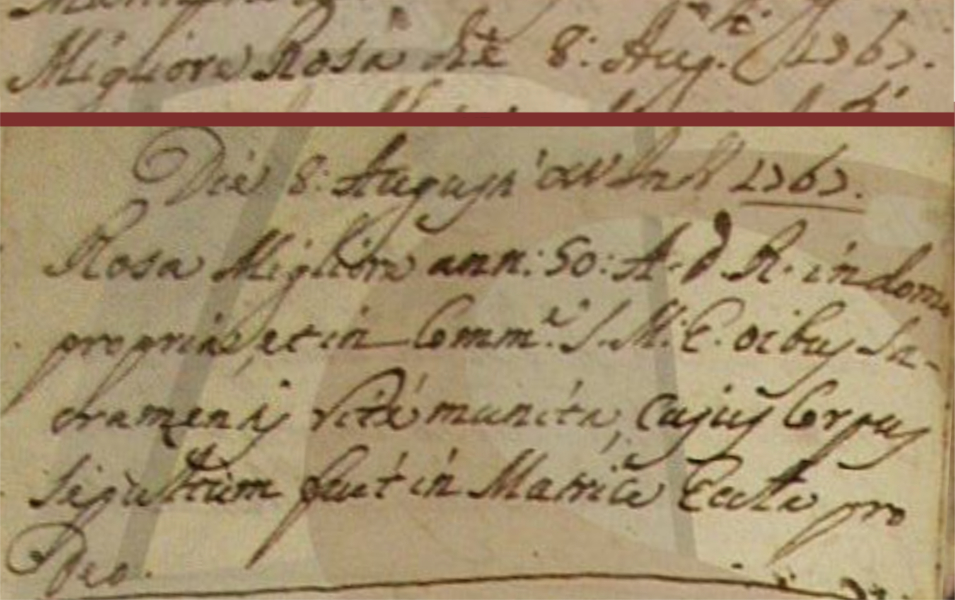 Migliore Rosa die 8: Aug.ti 1767.
Die 8: Augusti Ind. 1767.
Rosa Migliore ann: 50: A. D. R. in domo
propria, et in Comm.e S. M. E. oibus Sa-
cramentis rite munita, cujus Corpus
sepultum fuit in Matrice Eccla pro
Deo.